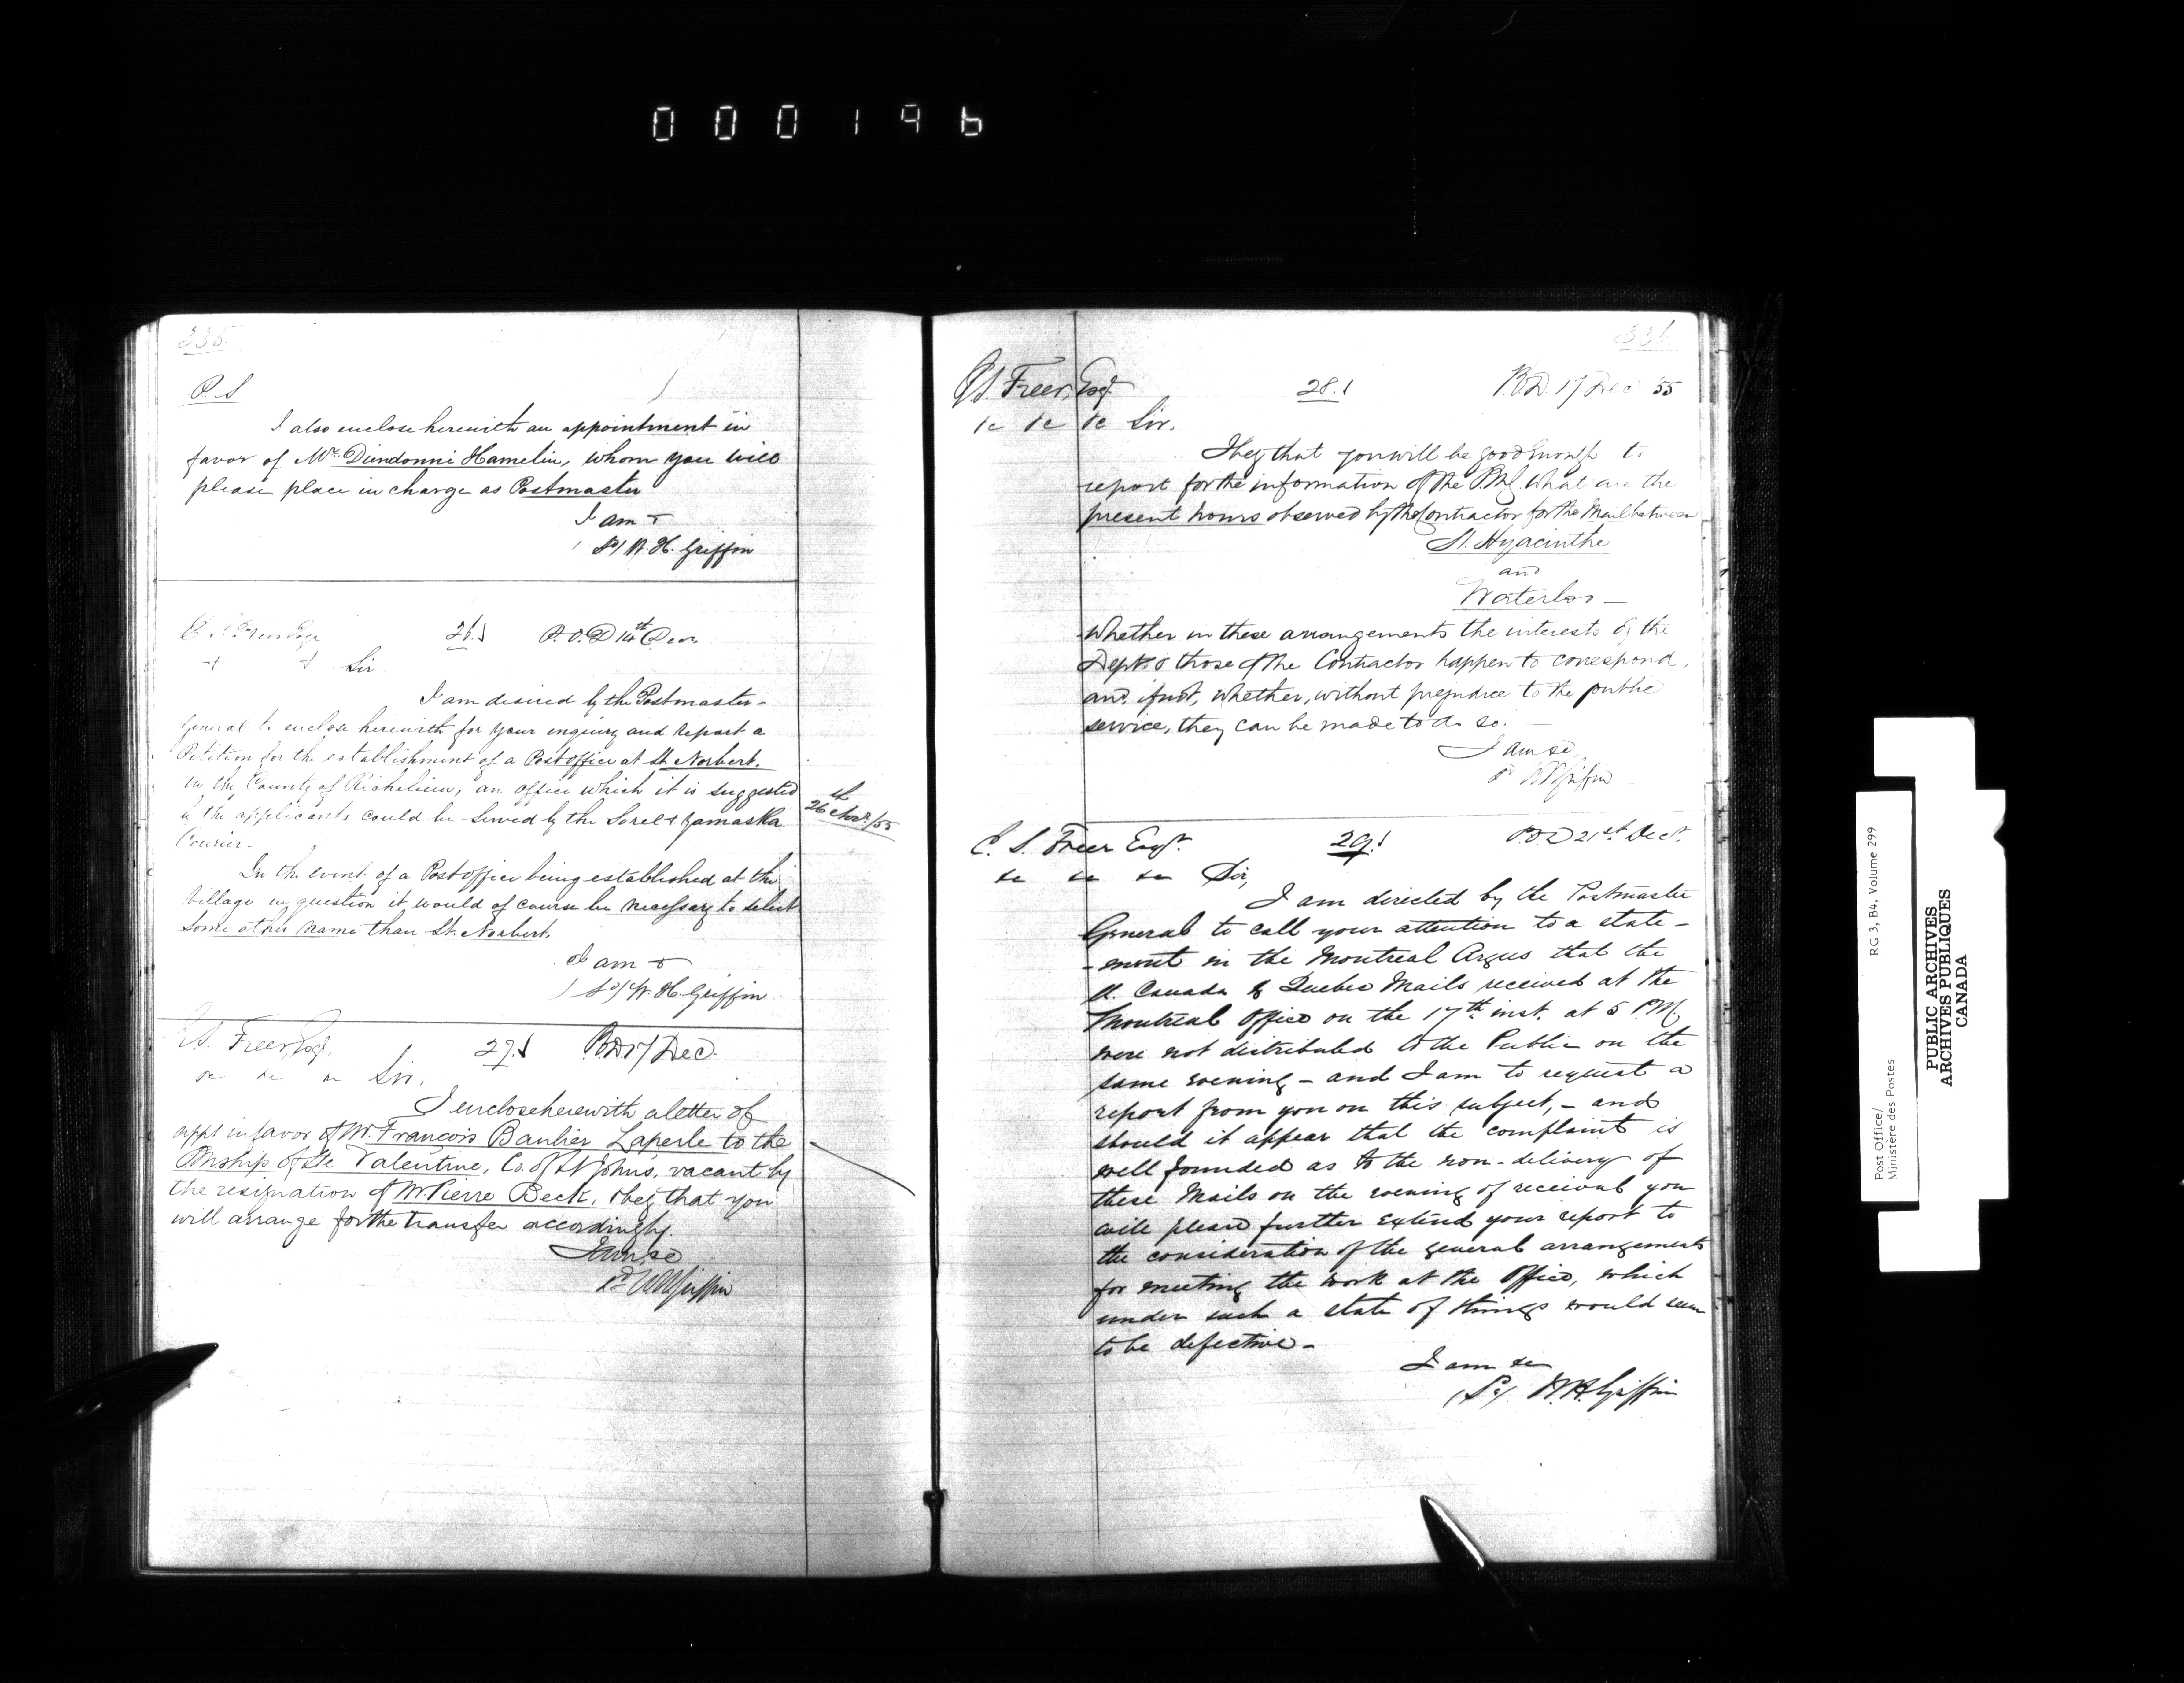 000196
335.
P.S
I also enclose herewith an appointment in
favor of Mr. Diendonné Hamelin, whom you will
please place in charge as Postmaster
I am &
Sd/ W. H. Griffin
E. S. Freer Esqr
26. P.O.D 14th Decr
& & Sir
I am desired by the Postmaster-
General to enclose herewith for your inquiry and report a
Petition for the establishment of a Post office at St. Norbert.
in the County of Richelieu, an office which it is suggested
by the applicants could be served by the Sorel & Yamaska
Courier-
26th Novr/55
In the event of a Post office being established at the
Village in question it would of course be necessary to select
some other name than St. Norbert.
I am &
Sd/ W. H. Griffin
E.S. Freer, Esq. 27. POD 17 Dec.
&c &c &c Sir,
I enclose herewith a letter of
appt in favor of Mr. Francois Laperle to the
Pmship of Ste Valentine, Co. of St Johns, vacant by
the resignation of Mr. Pierre Beck, & beg that you
will arrange for the transfer accordingly.
I am, &c
sd WHGriffin
336.
E.S. Freer, Esqr. 28. POD. 17 Dec '55
&c &c &c Sir,
I beg that you will be good enough to
report for the information of the P.M.G. what are the
present hours observed by the Contractor for the Mail between
St. Hyacinthe
and
Waterloo -
Whether in these arrangements the interests of the
Dept. & those of the Contractor happen to correspond,
and if not, whether, without prejudice to the public
service, they can be made to do so. -
I am &c
sd WHGriffin
E. S. Freer Esqr. 29. P.O.D 21st Decr.
&c &c &c Sir,
I am directed by the Postmaster
General to call your attention to a state-
-ment in the Montreal Argus that the
U. Canada & Quebec Mails received at the
Montreal Office on the 17th inst. at 5 P.M.
were not distributed to the Public on the
same evening - and I am to request a
report from you on this subject, - and
should it appear that the complaint is
well founded as to the non-delivery of
these Mails on the evening of receival you
will please further extend your report to
the consideration of the general arrangements
for meeting the work at the Office, which
under such a state of things would seem
to be defective -
I am &c
(Sd) W.H. Griffin
Post Office/ RG 3, B4, Volume 299
Ministère des Postes
PUBLIC ARCHIVES
ARCHIVES PUBLIQUES
CANADA